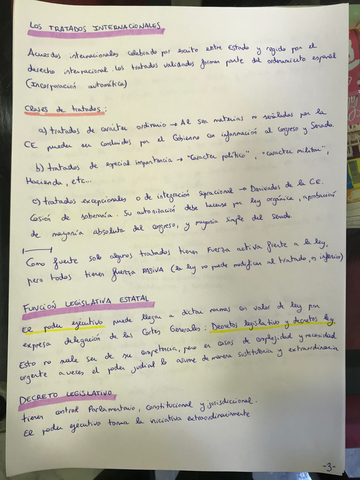 LOS TRATADOS INTERNACIONALES
Acuerdos internacionales celebrado por escrito entre Estado y regido por el
derecho internacional. Los tratados validados forman parte del ordenamiento español
(Incorporación automática)
Clases de tratados:
a) tratados de carácter ordinario → Al ser materias no señaladas por la
CE pueden ser conducidos por el Gobierno con información al Congreso y Senado.
b) tratados de especial importancia → "Carácter político", "carácter militar",
Hacienda, etc...
c) tratados excepcionales o de integración supracional → Derivados de la CE.
Cesión de soberanía. Su autorización debe hacerse por ley orgánica, aprobación
de mayoría absoluta del congreso, y mayoría simple del Senado.
Como fuente solo algunos tratados tienen Fuerza activa frente a la ley,
pero todos tienen fuerza PASIVA (la ley no puede modificar al tratado, es inferior)
FUNCIÓN LEGISLATIVA ESTATAL
El poder ejecutivo puede llegar a dictar normas con valor de ley por
expresa delegación de las Cortes Generales: Decretos legislativo y decretos ley.
Esto no suele ser de su competencia, pero en casos de complejidad y necesidad
urgente a veces el poder judicial lo asume de manera sustitutoria y extraordinaria
DECRETO LEGISLATIVO
tienen control Parlamentario, constitucional y jurisdiccional.
El poder ejecutivo toma la iniciativa extraordinariamente
-3-